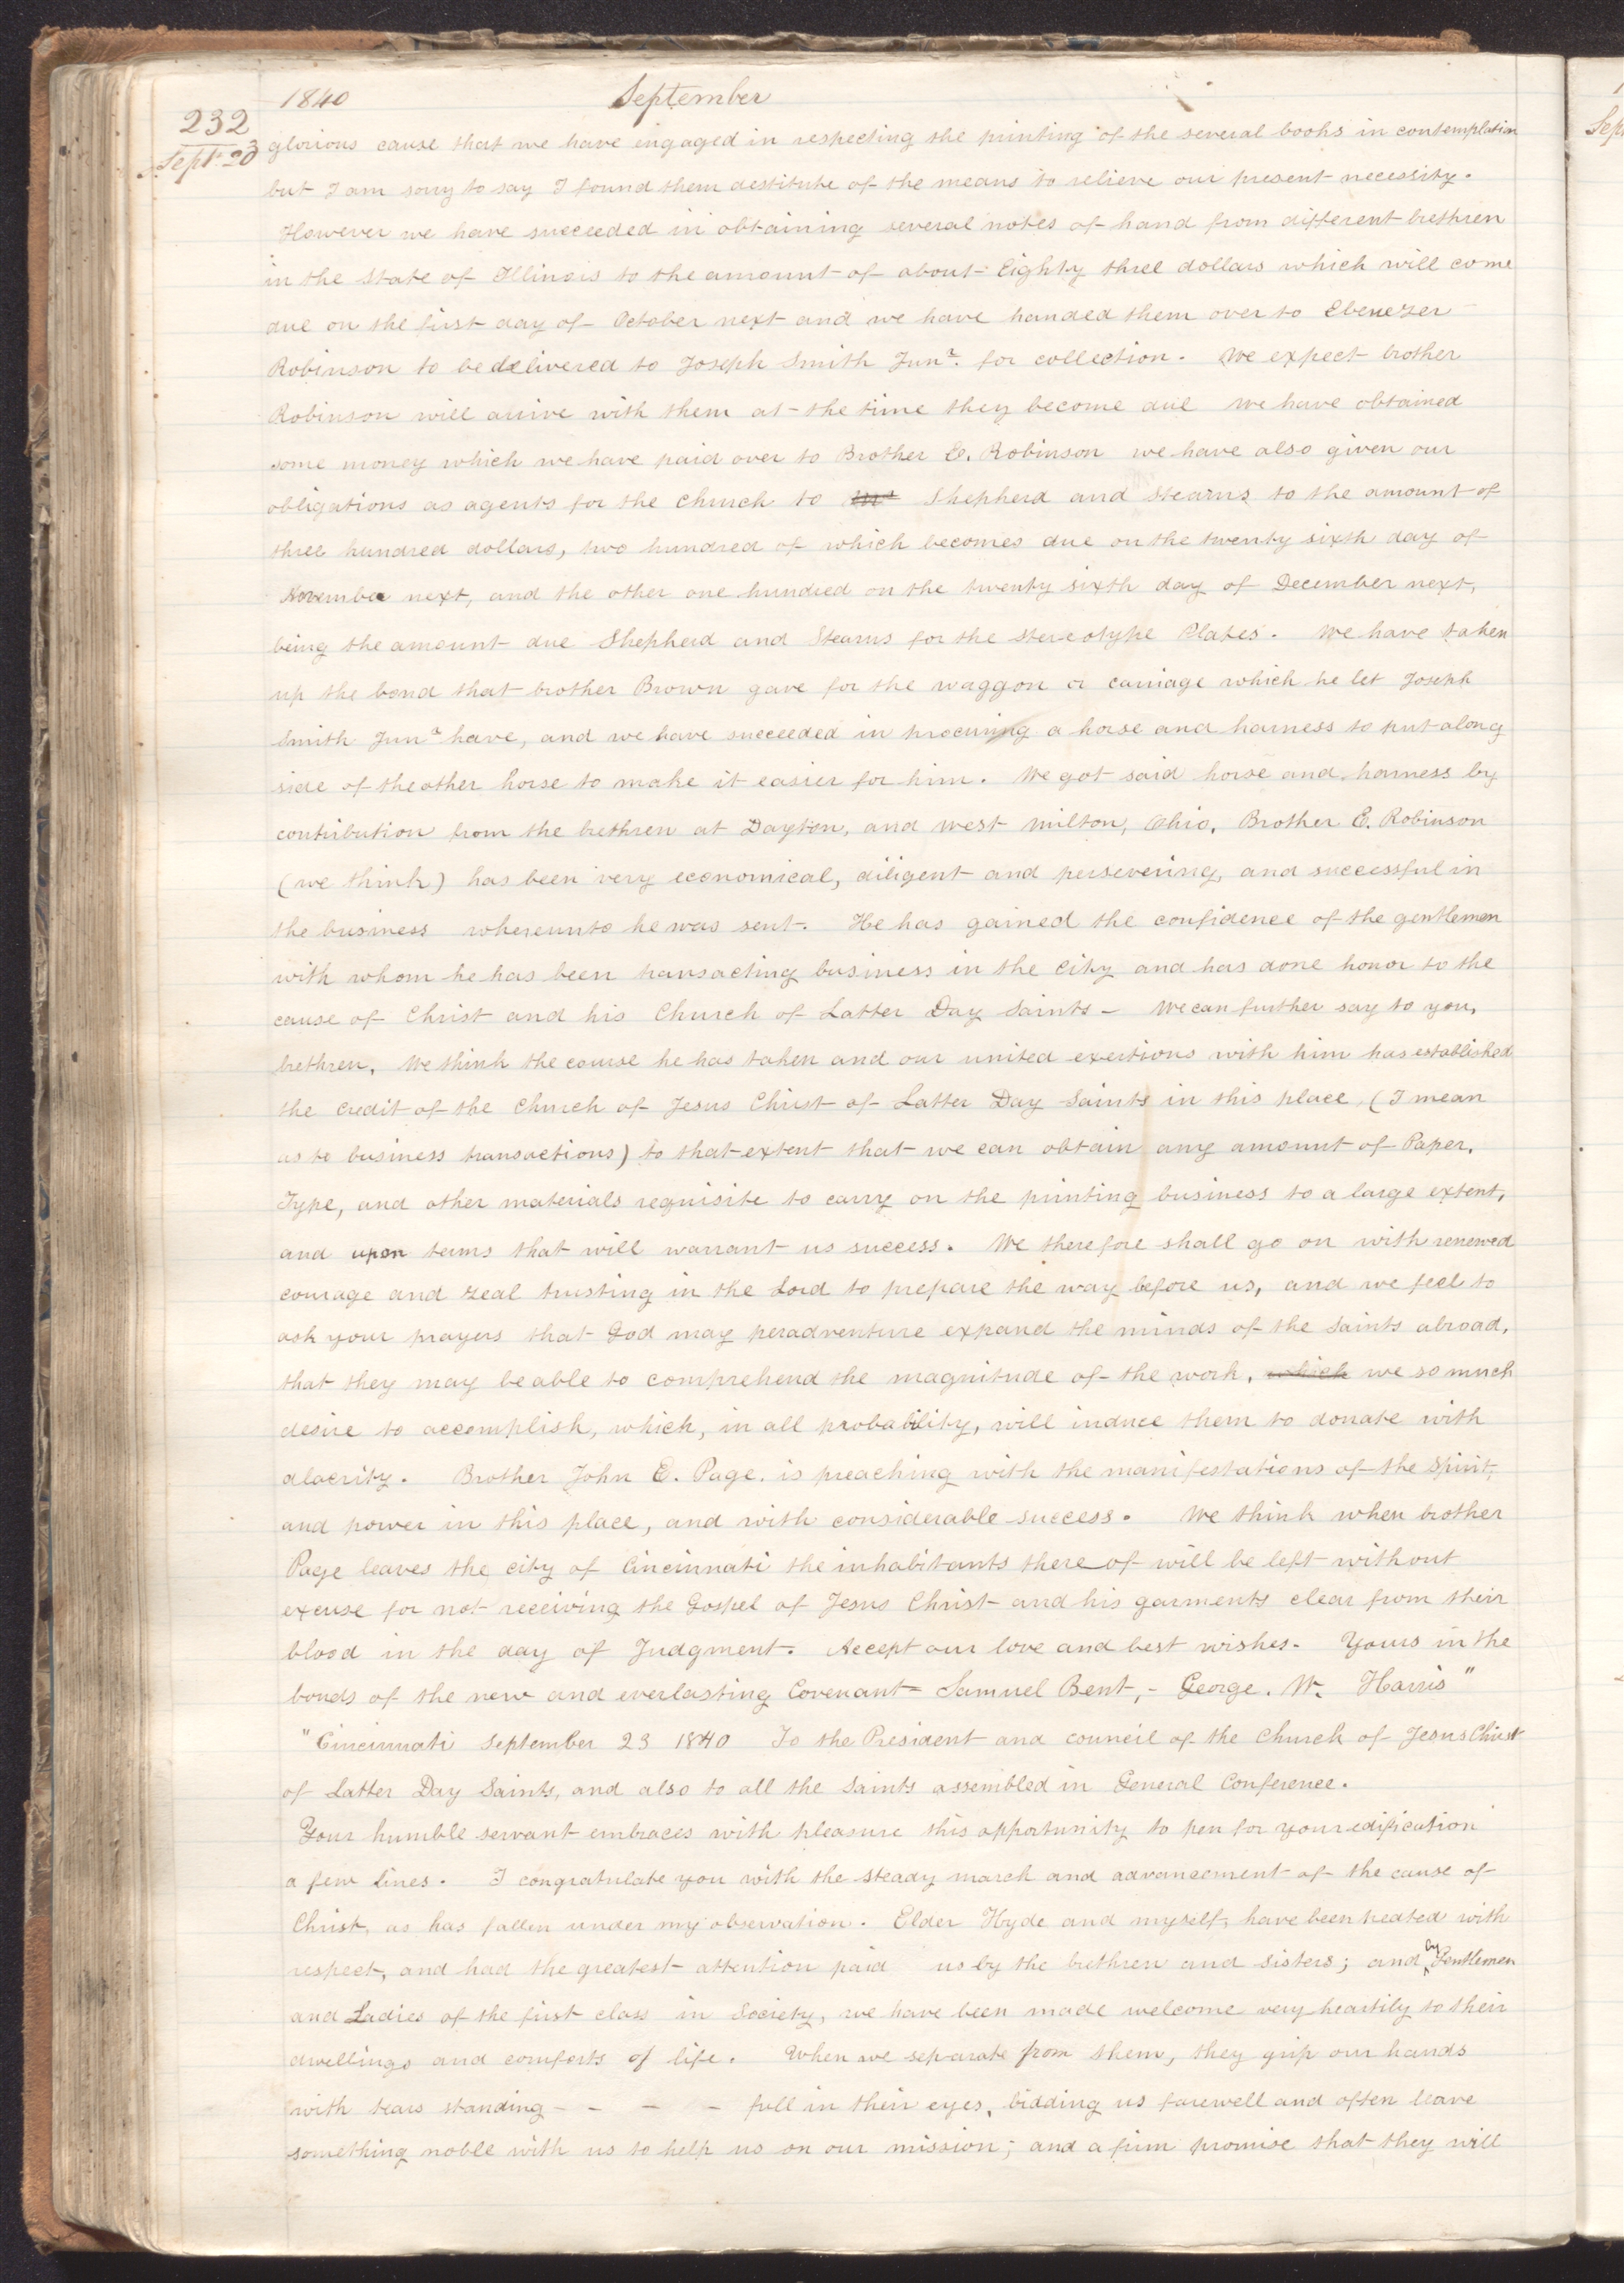 1840 September
232
Sept. 23
glorious cause that we have engaged in respecting the printing of the several books in contemplation
but I am sorry to say I found them destitute of the means to relieve our present necessity.
However we have succeeded in obtaining several notes of hand from different brethren
in the State of Illinois to the amount of about Eighty three dollars which will come
due on the first day of October next and we have handed them over to Ebenezer
Robinson to be delivered to Joseph Smith Junr. for collection. We expect brother
Robinson will arrive with them at the time they become due We have obtained
some money which we have paid over to Brother E. Robinson we have also given our
obligations as agents for the Church to Shepherd and Stearns to the amount of
three hundred dollars, two hundred of which becomes due on the twenty sixth day of
November next, and the other one hundred on the twenty sixth day of December next,
being the amount due Shepherd and Stearns for the Stereotype Plates. We have taken
up the bond that brother Brown gave for the waggon or carriage which he let Joseph
Smith Junr have, and we have succeeded in procuring a horse and harness to put along
side of the other horse to make it easier for him. We got said horse and harness by
contribution from the brethren at Dayton, and West Milton, Ohio, Brother E. Robinson
(we think) has been very economical, diligent and persevering, and successful in
the business whereunto he was sent. He has gained the confidence of the gentlemen
with whom he has been transacting business in the City and has done honor to the
cause of Christ and his Church of Latter Day Saints – We can further say to you,
brethren, We think the course he has taken and our united exertions with him has established
the Credit of the Church of Jesus Christ of Latter Day Saints in this place (I mean
as to business transactions) to that extent that we can obtain any amount of Paper,
Type, and other materials requisite to carry on the printing business to a large extent,
and upon terms that will warrant us success. We therefore shall go on with renewed
courage and zeal trusting in the Lord to prepare the way before us, and we feel to
ask your prayers that God may peradventure expand the minds of the Saints abroad,
that they may be able to comprehend the magnitude of the work, which we so much
desire to accomplish, which, in all probability, will induce them to donate with
alacrity. Brother John E. Page. is preaching with the manifestations of the Spirit,
and power in this place, and with considerable success. We think when brother
Page leaves the city of Cincinnati the inhabitants there of will be left without
excuse for not receiving the Gospel of Jesus Christ and his garments clear from their
blood in the day of Judgment. Accept our love and best wishes. Yours in the
bonds of the new and everlasting Covenant= Samuel Bent, – George. W. Harris"
"Cincinnati September 23 1840 To the President and council of the Church of Jesus Christ
of Latter Day Saints, and also to all the Saints assembled in General Conference.
Your humble servant embraces with pleasure this opportunity to pen for your edification
a few lines. I congratulate you with the steady march and advancement of the cause of
Christ, as has fallen under my observation. Elder Hyde and myself, have been treated with
respect, and had the greatest attention paid us by the brethren and Sisters; and by Gentlemen
and Ladies of the first class in Society, we have been made welcome very heartily to their
dwellings and comforts of life. When we separate from them, they grip our hands
with tears standing - - - - full in their eyes, bidding us farewell and often leave
something noble with us to help us on our mission; and a firm promise that they will